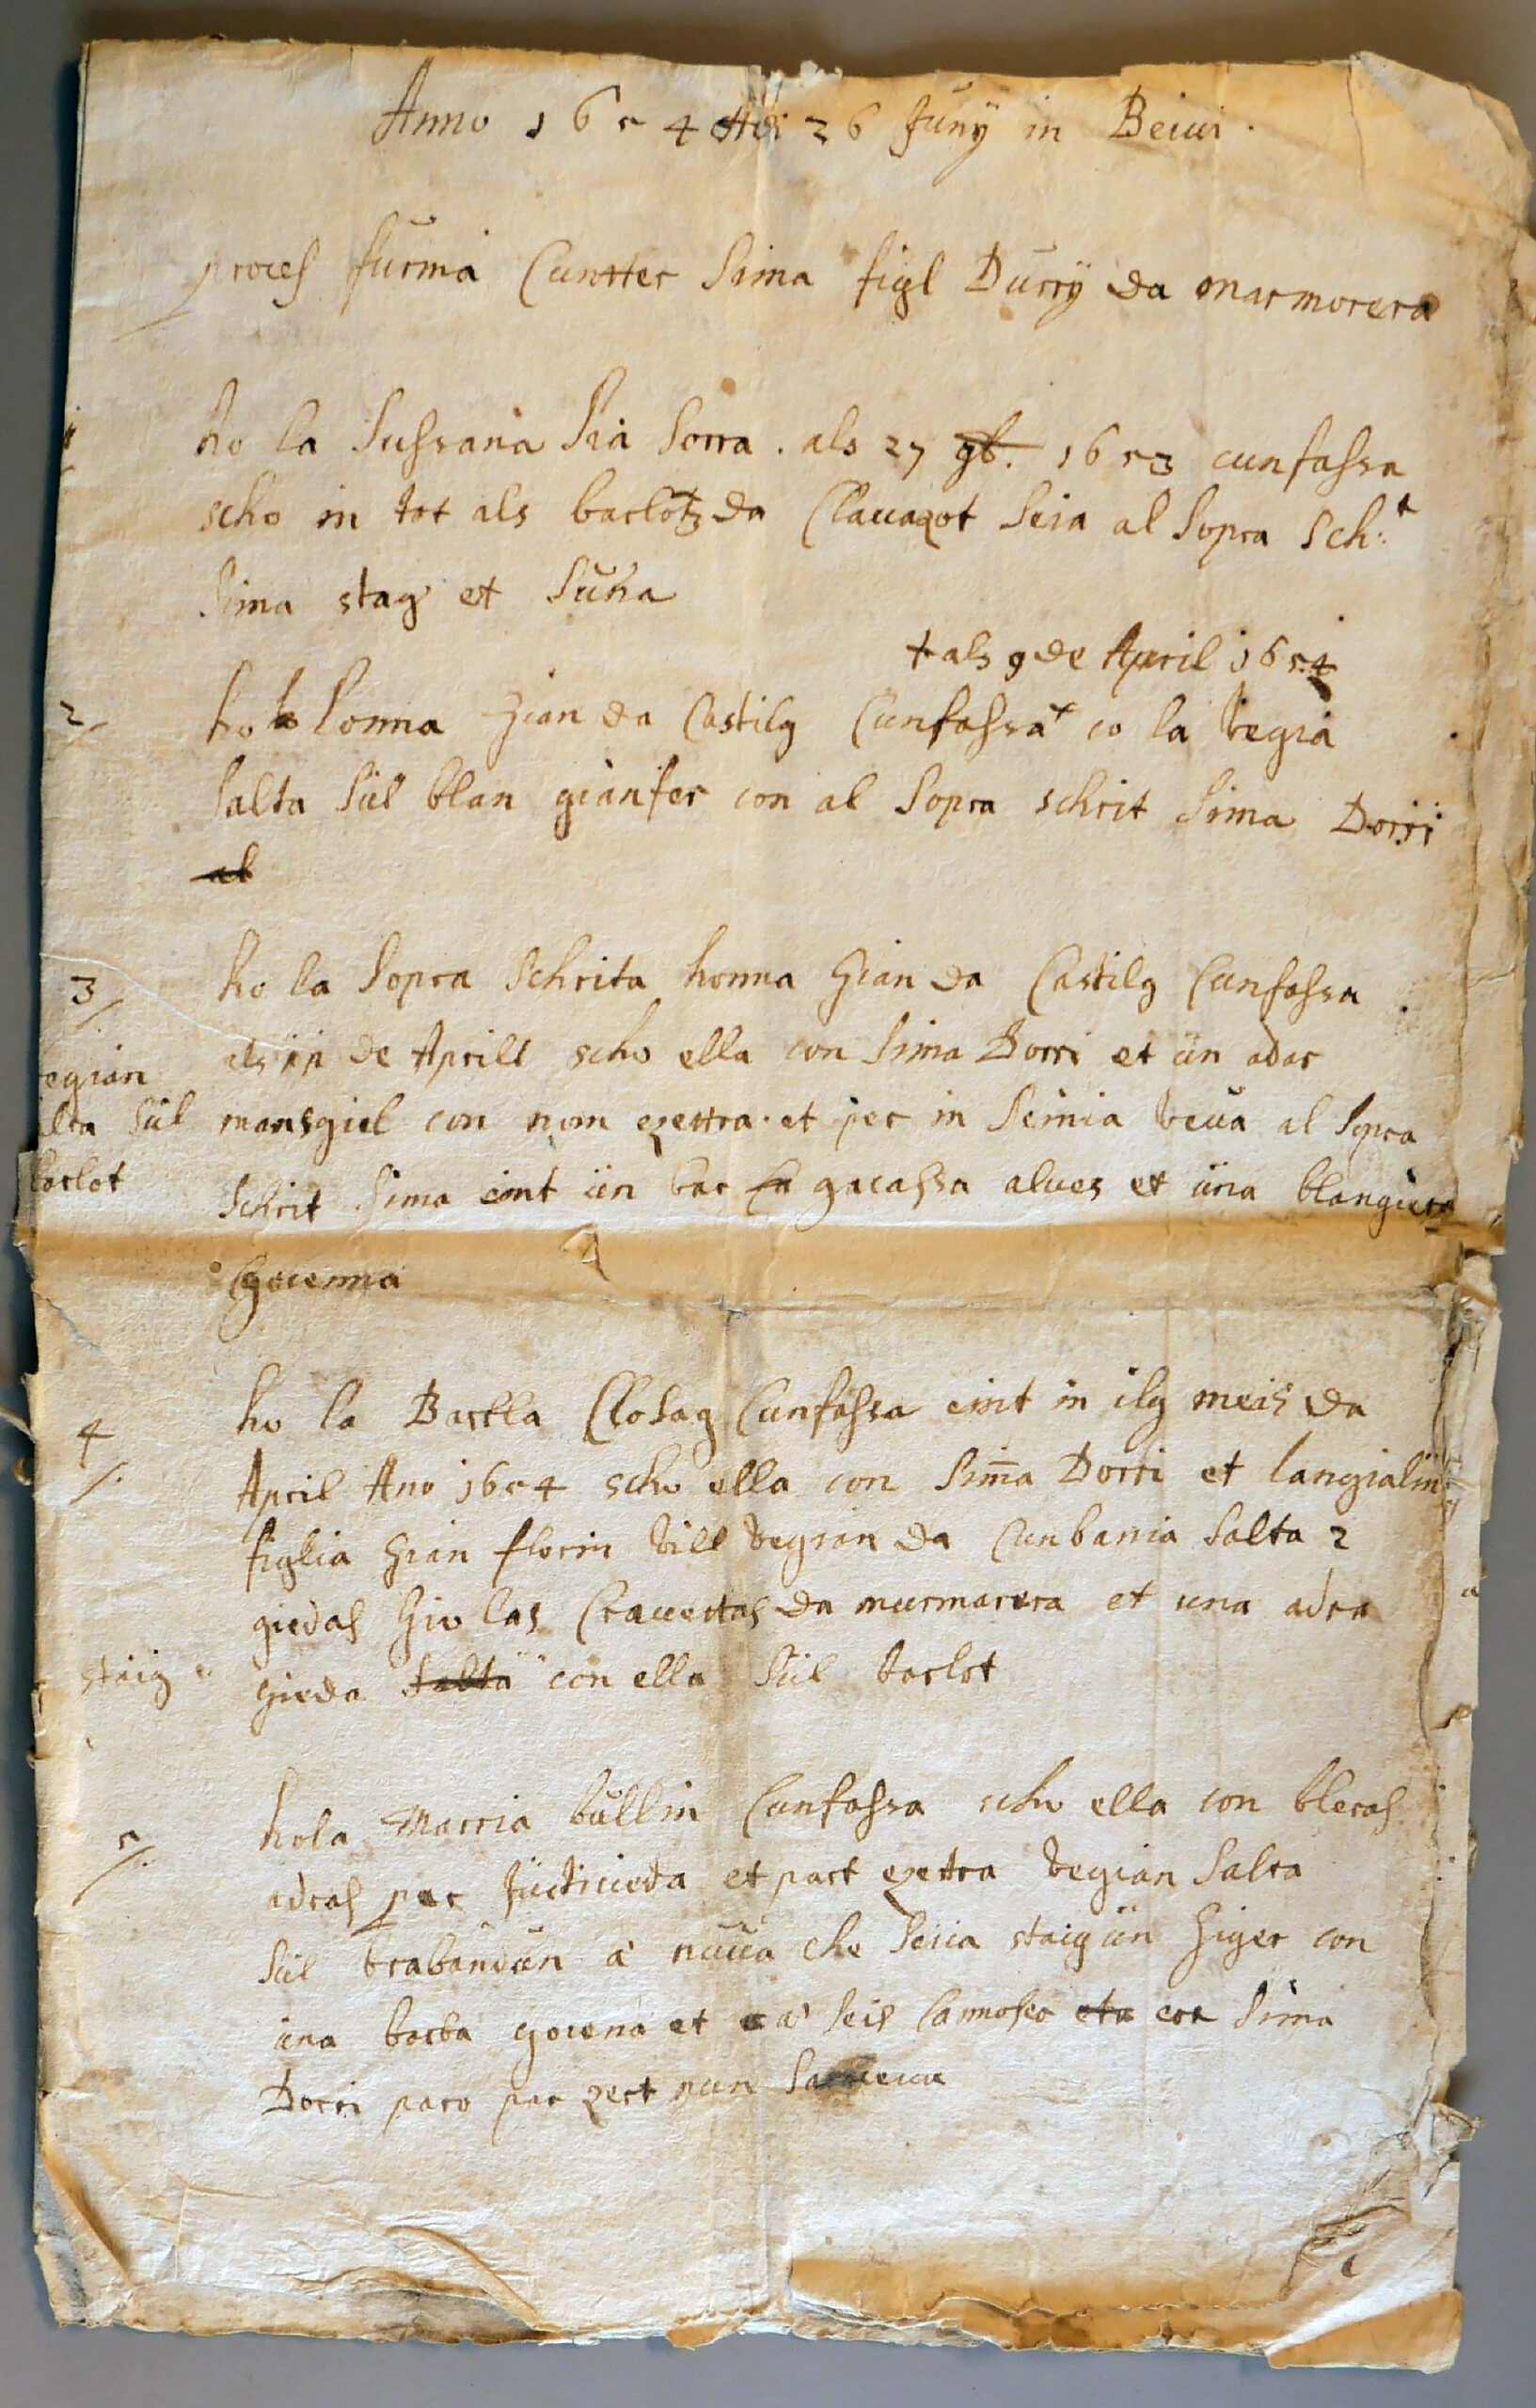 Anno 1654 Adi 26 Junÿ in Beiui.
proces furmà Cuntter Sima figl Durrÿ da marmorera
1
ho la Sussana Sia Sorra. als 27 9b. 1653 cunfassa
scho in tot als barlotz da Clauazot Seia al Sopra Sch:t
Sima stag et Suna
+ als 9 de April 1654
2
ho la honna Gian da Castilg Cunfassa + co la vegia
Salta Sül blan gianfer con al Sopra schrit Sima Dorri
al
3
ho la Sopra Schrita honna Gian da Castilg Cunfassa
als 11 de Aprill scho ella con Sima Dorri et ün adar
egian
lta Sül
barlot
mansgiel con nom ezettra. et per in Seinia veua al Sopra
Schrit Sima eint ün bar gacassa alues et üna blangiera
gocenna
4
ho la Barbla Clohag Cunfassa eint in ilg meis da
April Ano 1654 scho ella con Sima Dorri et langialina
figlia Gian florin vill vegian da Cunbania Salta 2
giedas Gio las Crauestas da murmarera et una adra
staig
gieda salta con ella Sül barlot
5
ho la Marria büllin Cunfassa scho ella con bleras
adras per Jüdicieda et part ezettra vegian Salta
Sül barlot à nuua che Seiia staig ün Giger con
üna barba gocena et à Seis Cannoscu eta con Sima
Dorri paro par zert nun